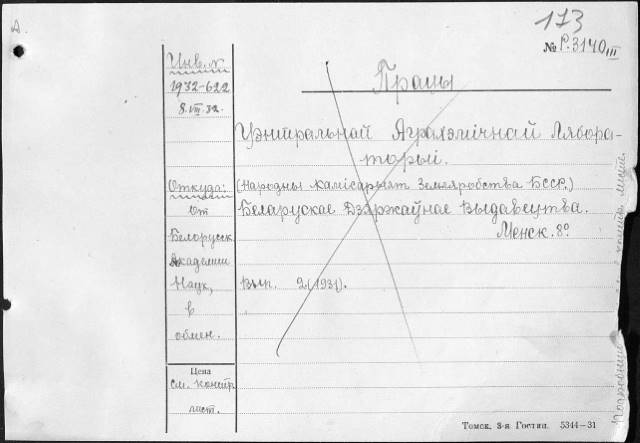 А.
173
№ Р.3140 III
Инв. №
1932-622
8.VIII.32.
Откуда:
От
Белорусск.
Академии
Наук,
в
обмен.
Цена
см. контр.
лист.
Працы
Цэнтральнай Аграхэмічнай Лябора-
торыі.
(Народны Камісарыят Земляробства БССР.)
Беларускае Дзяржаўнае Выдавецтва.
Менск. 8º
Вып. 2 (1931).
Томск. 3-я Гостип. 5344—31